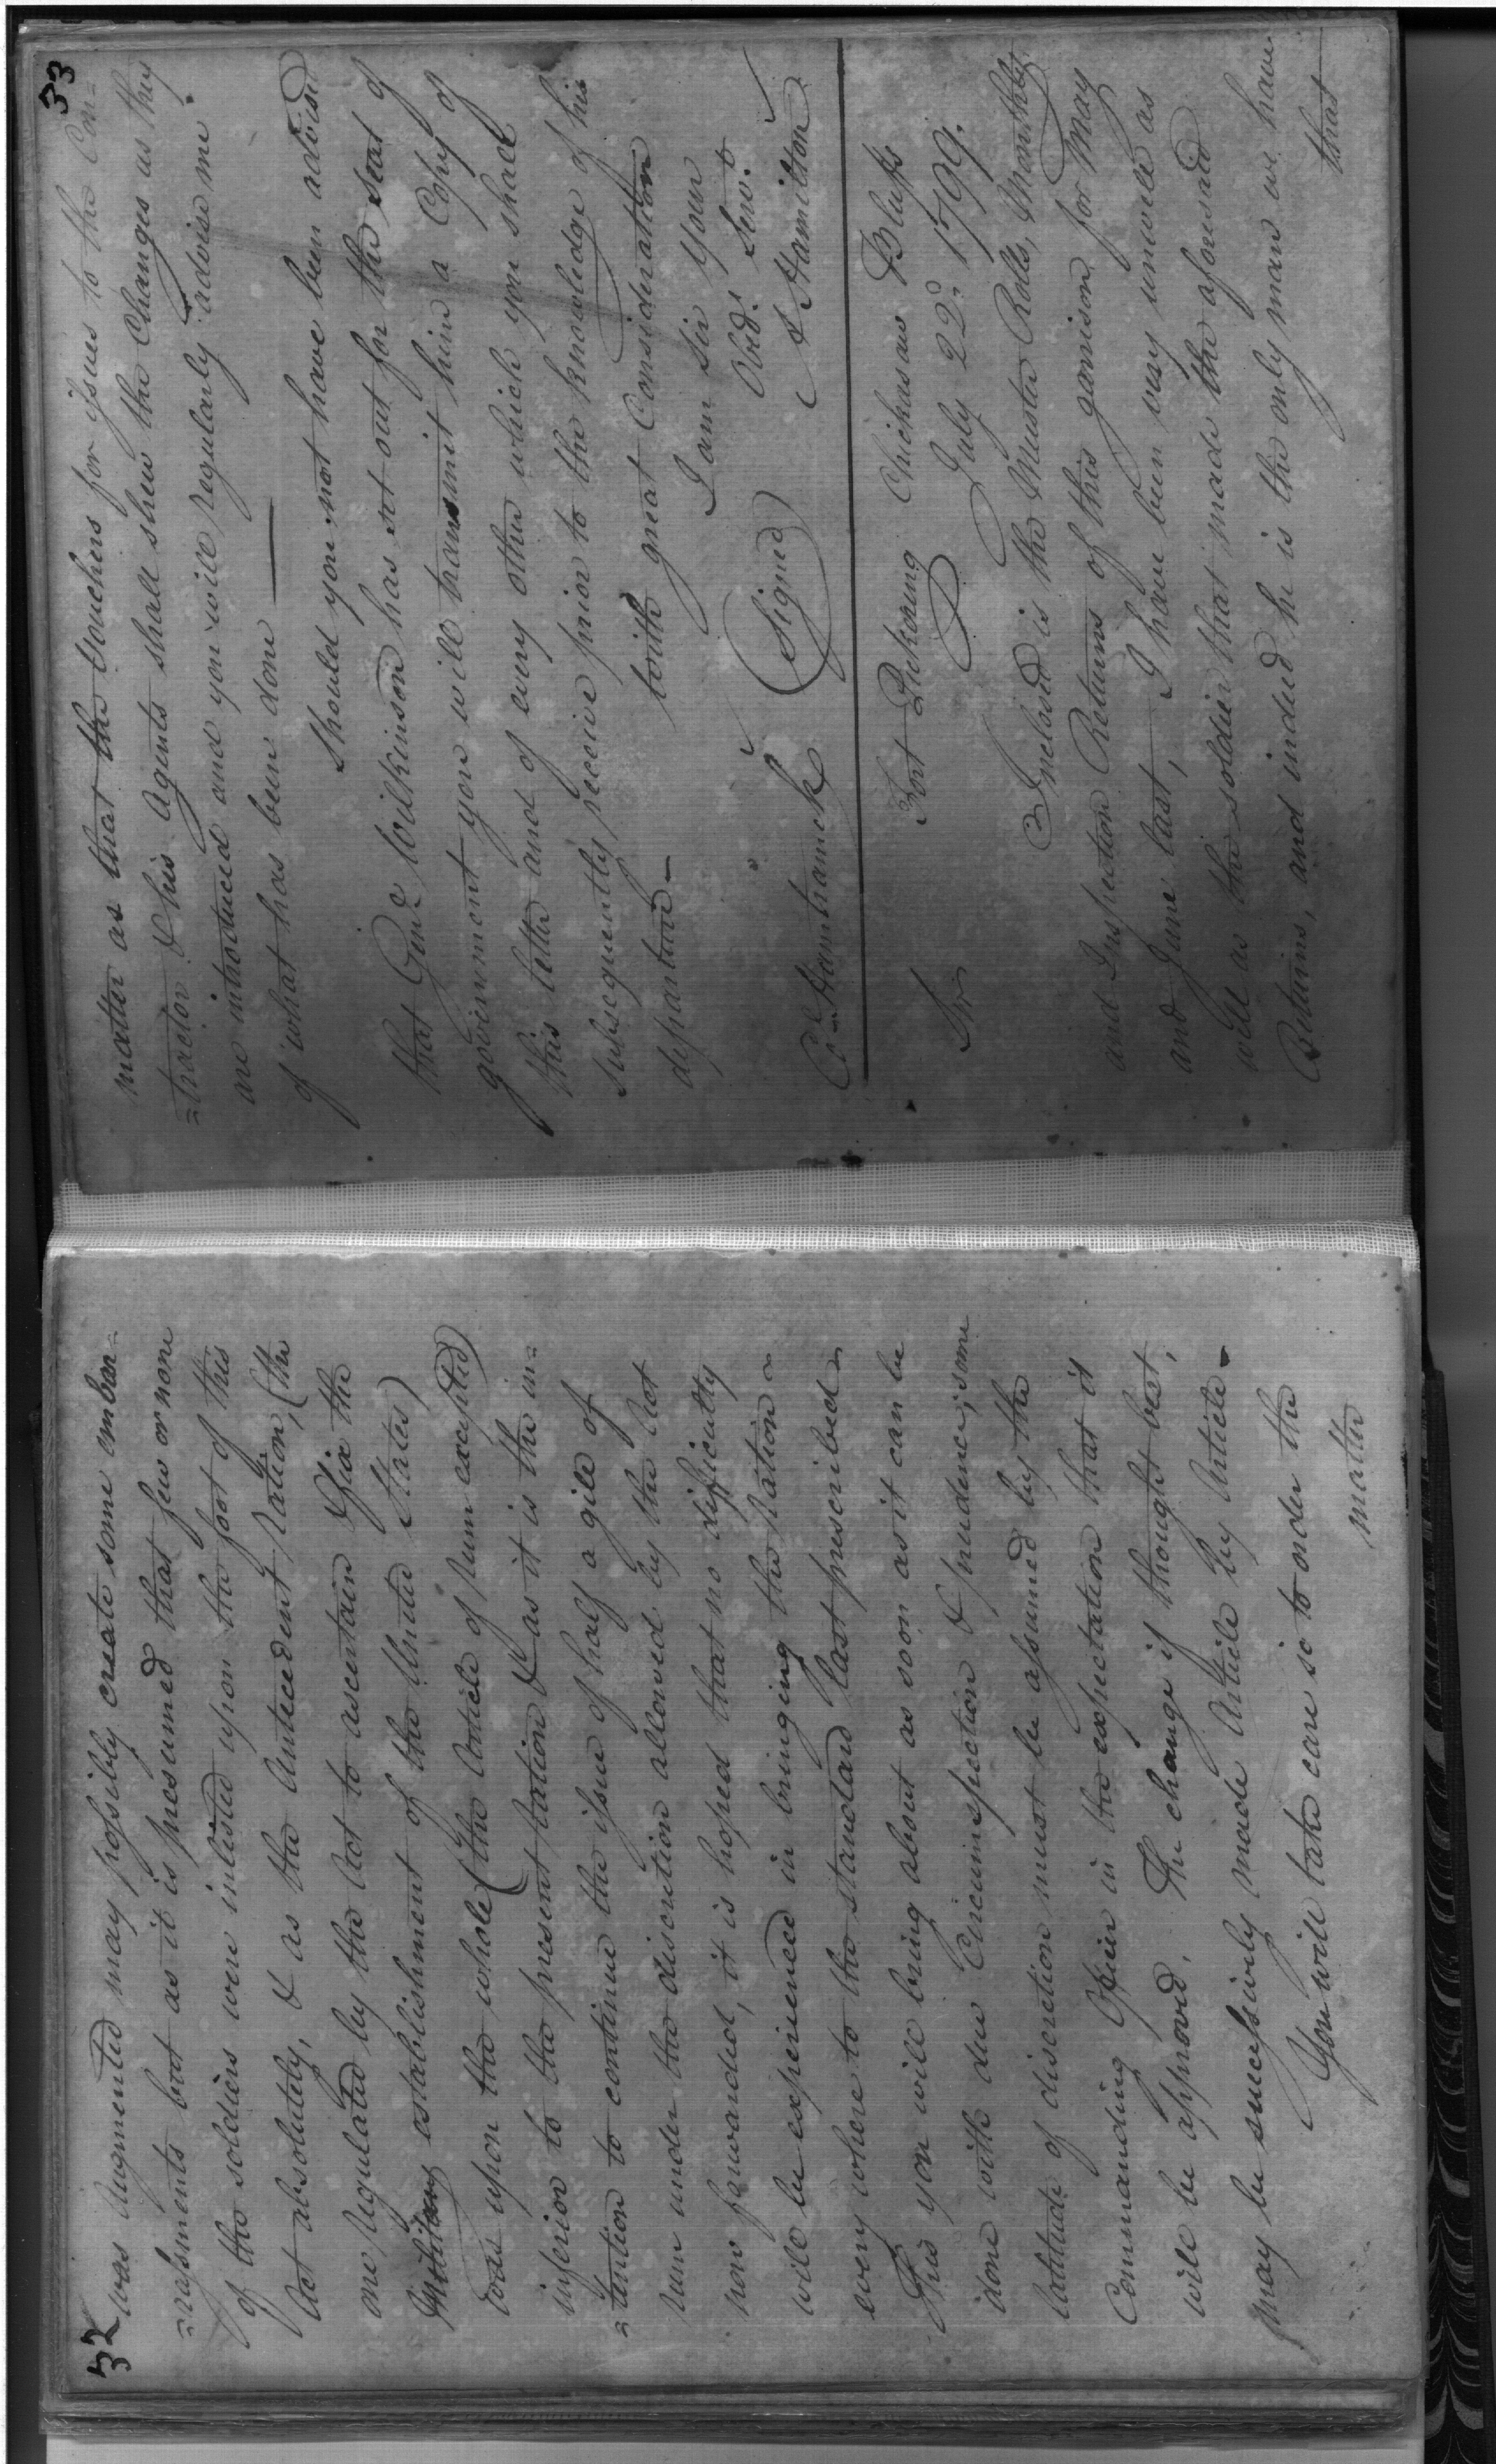 32
was Augmented may possibly create some embar=
=rassments but as it is presumed that few or none
of the soldiers were inlisted upon the foot of this
Act absolutely, & as the Antecedent Ration, (the
one regulated by the Act to ascertain & fix the
Military establishment of the United States)
was upon the whole (the Article of Rum excepted)
inferior to the present Ration & as it is the in=
=tention to continue the issue of half a gill of
rum under the discretion allowed by the Act
now forwarded, it is hoped that no difficulty
will be experienced in bringing the Ration
every where to the standard last prescribed
This you will bring about as soon as it can be
done with due Circumspection & prudence; some
latitude of discretion must be assumed by the
Commanding Officer in the expectation that it
will be approved. The change if thought best,
may be successively made Article by Article
You will take care so to order the
matter
33
matter as that the Vouchers for issues to the Con=
=tractor & his Agents shall shew the Changes as they
are introduced and you will regularly advise me
of what has been done
Should you not have been advised
that Genl Wilkinson has set out for the seat of
government you will transmit him a Copy of
this letter and of every other which you shall
subsequently receive prior to the knowledge of his
departure
with great Consideration
I am Sir Your
Obd. Servt
(Signed) A Hamilton
Col Hamtramck
Fort Pickering Chickasaw Bluffs
July 22d 1799.
Sir
Inclosed is the Muster Rolls, Monthly
and Inspection Returns of this garrison for May
and June last, I have been very unwell as
well as the soldier that made the aforesaid
Returns, and indeed he is the only man we have
that